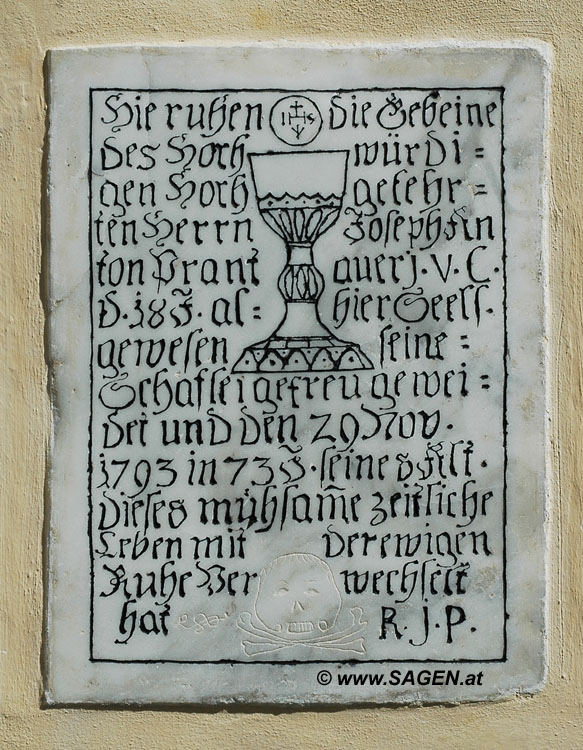 Hie ruhen IHS die Gebeine
des Hoch würdi=
gen Hoch gelehr=
ten Herrn Joseph An
ton Prant auer j. V. C.
d. 18 J. al= hier Seels.
gewesen seine=
Schaflei getreu gewei=
det und den 29 Nov.
1793 in 73 J. seines Alt.
dieses mühsam̅e zeitliche
Leben mit der ewigen
Ruhe Ver wechselt
hat R. j. P.
© www.SAGEN.at